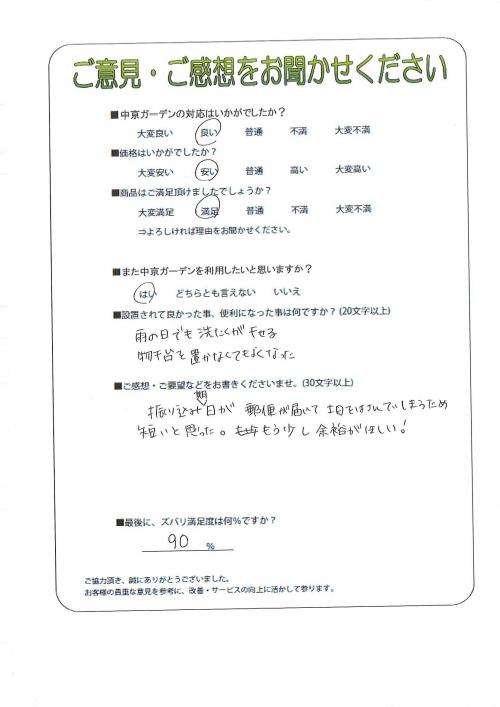 ご意見・ご感想をお聞かせください
■中京ガーデンの対応はいかがでしたか？
大変良い 良い 普通 不満 大変不満
■価格はいかがでしたか？
大変安い 安い 普通 高い 大変高い
■商品はご満足頂けましたでしょうか？
大変満足 満足 普通 不満 大変不満
⇒よろしければ理由をお聞かせください。
■また中京ガーデンを利用したいと思いますか？
はい どちらとも言えない いいえ
■設置されて良かった事、便利になった事は何ですか？(20文字以上)
雨の日でも 洗たくが干せる
物干台を置かなくてもよくなった
■ご感想・ご要望などをお書きくださいませ。(30文字以上)
振り込み期日が 郵便が届いて 土日をはさんでしまうため
短いと思った。もう少し 余裕がほしい！
■最後に、ズバリ満足度は何％ですか？
90 %
ご協力頂き、誠にありがとうございました。
お客様の貴重な意見を参考に、改善・サービスの向上に活かして参ります。